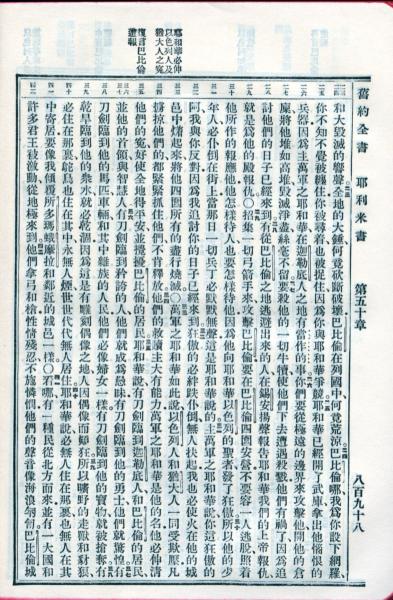 舊約全書 耶利米書 第五十章 八百九十八
耶和華必伸
以色列人及
猶大人之寃
復言巴比倫
遭報
和大毀滅的響聲全地的大錘何竟砍斷破壞巴比倫在列國中何竟荒涼巴比倫哪我為你設下網羅
你不知不覺被纏住你被尋着也被捉住因為你與耶和華爭競耶和華已經開了武庫拿出他惱恨的
兵器因為主萬軍之耶和華在迦勒底人之地有當作的事你們要從極遠的邊界來攻擊他開他的倉
廩將他堆如高堆毀滅淨盡絲毫不留要殺他的一切牛犢使他們下去遭遇殺戮他們有禍了因為追
討他們的日子已經來到有從巴比倫之地逃避出來的人在錫安揚聲報告耶和華我們的上帝報仇
就是為他的殿報仇○招集一切弓箭手來攻擊巴比倫要在巴比倫四圍安營不要容一人逃脫照着
他所作的報應他他怎樣待人也要怎樣待他因為他向耶和華以色列的聖者發了狂傲所以他的少
年人必仆倒在街上當那日一切兵丁必默默無聲這是耶和華說的主萬軍之耶和華說你這狂傲的
阿我與你反對因為我追討你的日子已經來到狂傲的必絆跌仆倒無人扶起我也必使火在他的城
邑中燒起來將他四圍所有的盡行燒滅○萬軍之耶和華如此說以色列人和猶大人一同受欺壓凡
擄掠他們的都緊緊抓住他們不肯釋放他們的救贖主大有能力萬軍之耶和華是他的名他必伸清
他們的寃好使全地得平安並攪擾巴比倫的居民耶和華說有刀劍臨到迦勒底人和巴比倫的居民
並他的首領與智慧人有刀劍臨到矜誇的人他們就成為愚昧有刀劍臨到他的勇士他們就驚惶有
刀劍臨到他的馬匹車輛和其中雜族的人民他們必像婦女一樣有刀劍臨到他的寶物就被搶奪有
乾旱臨到他的眾水就必乾涸因為這是有雕刻偶像之地人因偶像而顛狂所以曠野的走獸和豺狼
必住在那裏鴕鳥也住在其中永無人煙世世代代無人居住耶和華說必無人住在那裏也無人在其
中寄居要像我傾覆所多瑪蛾摩拉和鄰近的城邑一樣○看哪有一種民從北方而來並有一大國和
許多君王被激動從地極來到他們拿弓和槍性情殘忍不施憐憫他們的聲音像海浪匉訇巴比倫城